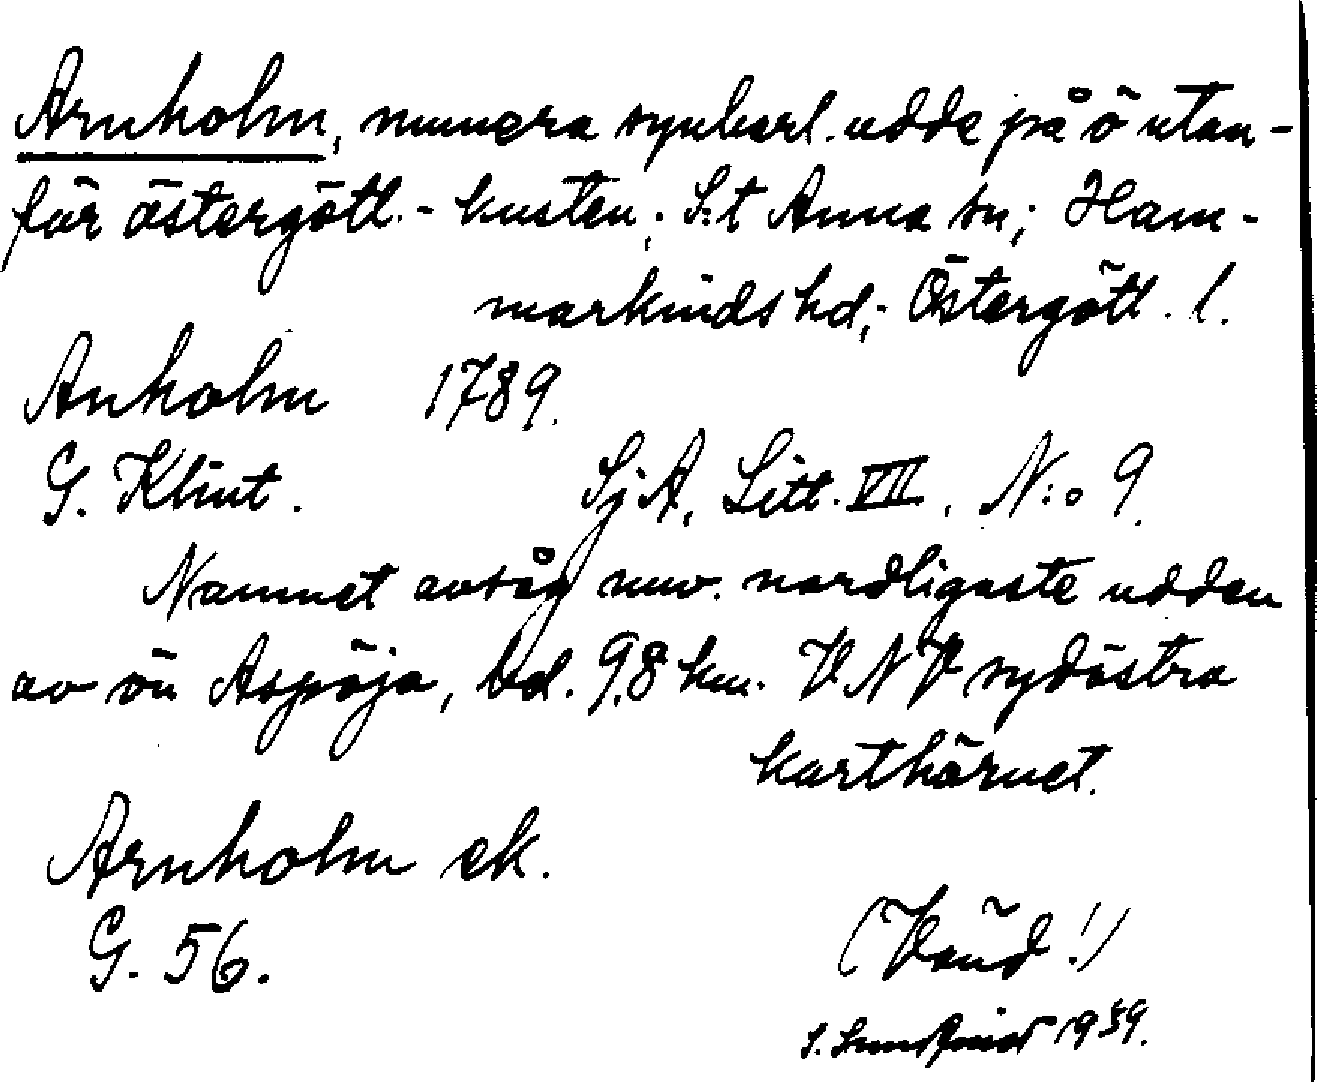 Arnholm, numera synbarl. udde på ö utan-
för östergötl.-kusten; S:t Anna sn; Ham-
markinds hd; Östergötl. l.
Anholm 1789.
G. Klint. SjA, Litt. VII, N:o 9.
Namnet avsåg nuv. nordligaste udden
av ön Aspöja, bel. 9,8 km. VNV sydöstra
karthörnet.
Arnholm ek.
G. 56.
(Vänd!)
S. Lundqvist 1939.